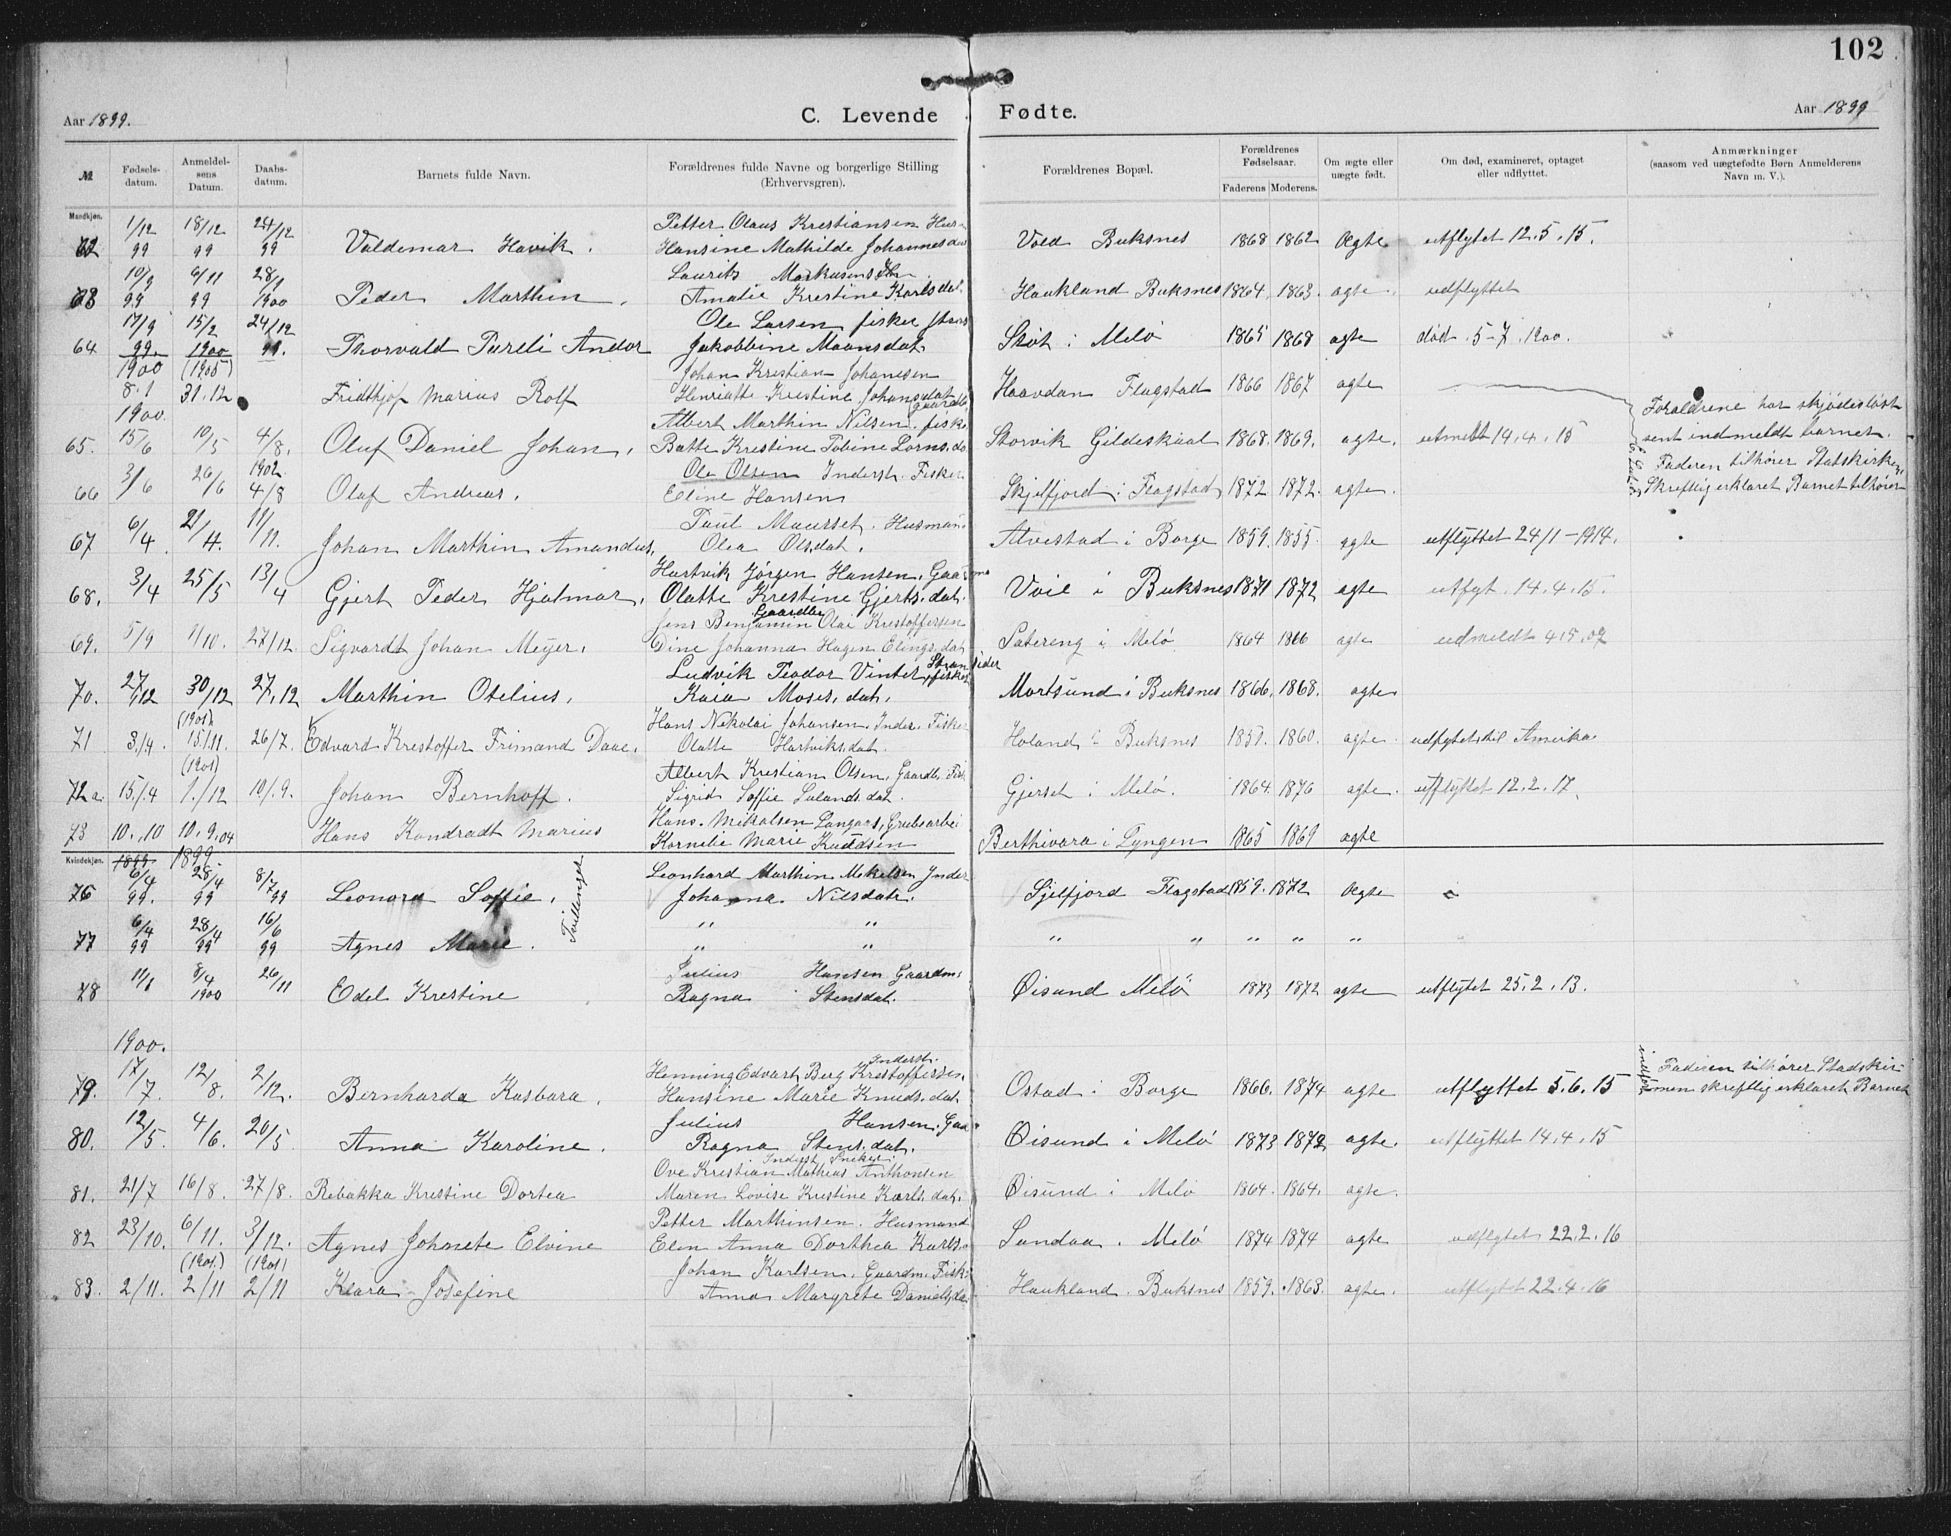 102
Aar 1899. C. Levende Fødte. Aar 1899
№ Fødsels-datum. Anmeldel-sens Datum. Daabs-datum. Barnets fulde Navn. Forældrenes fulde Navne og borgerlige Stilling (Erhvervsgren). Forældrenes Bopæl. Forældrenes Fødselsaar. Faderens Moderens. Om ægte eller uægte født. Om død, examineret, optaget eller udflyttet. Anmærkninger (saasom ved uægtefødte Børn Anmelderens Navn m. V.).
Mandkjøn.
1/12 18/12 24/12 Petter Olaus Krestiansen Hus
62 99 99 99 Valdemar Havik. Hansine Mathilde Johannesdat Vold Buksnes 1868 1862 Ægte utflytet 12.5.15.
10/9 6/11 28/1 Laurits Markusens
63 99 99 1900 Peder Marthin. Amalie Krestine Karlsdat. Haukland Buksnes 1864. 1863. ægte. udflyttet
17/9 15/2 24/12 Ole Larsen fisker
64 99. 1900 99. Thorvald Tureli Andor Jakobbine Maansdat. Støt i Melø 1865 1868 ægte død. 5-7. 1900.
1900 (1905) Johan Krestian Johanesen
8.1 31.12 Fridthjof Marius Rolf Henriatte Krestine Johansdat Haavdan Flagstad 1866 1867 ægte
1900. Albert Marthin Nilsen. fisk. Forældrene har skjødesløst
65. 15/6 10/5 4/8. Oluf Daniel Johan. Batte Krestine Tobine Lorns.da Storvik Gildeskaal 1868. 1869. ægte. utmeldt 14.4.15 sent indmeldt barnet.
1902 Ole Olsen Inderst. Fisker Faderen tilhører Statskirken,
66 3/6 26/6 4/8 Olaf Andreas. Eline Hansen Skjelfjord i Flagstad 1872 1872. ægte. Skreftlig erklaret Barnet tilhører
Paul Maurset. Husman
67 6/4 21/4. 11/11. Johan Marthin Amandus. Olea Olsdat. Alvestad i Borge 1859. 1855. ægte utflyttet 24/1-1914.
Hartvik Jörgen Hansen. Gaardma
68. 3/4 25/5 13/4 Gjert Peder Hjalmar. Olatte Krestine Gjerts.dat. Voie i Buksnes 1871 1872 ægte utflyt. 14.4.15.
Gaardbr
Jens Benjamin Olai Krestoffersen
69. 5/9 1/10. 27/12. Sigvardt Johan Meyer. Dine Johanna Hagen Elings.dat Sætereng i Melø. 1864 1866 ægte udmeldt 4.5.07
Ludvik Teodor Vinter, Strandsider fisker
70. 27/12 30/12 27/12 Marthin Otelius. Kaia Moses.dat. Mortsund i Buksnes 1866. 1868. ægte
(1901). Hans Nikolai Johansen. Inder. Fisker
71 3./4. 15./11. 26/7. Edvard Krestoffer Frimand Daae. Olatte Hartviksdat. Holand i Buksnes 1857. 1860. ægte udflytet til Amerika.
(1901) Albert Krestian Olsen. Gaardb. Fisk
72a. 15./4 1./12 10/.9. Johan Bernhoff. Sigrid Soffie Lulands.dat. Gjerset i Melø. 1864. 1870 ægte. utflyttet 12.2.17.
Hans. Mikalsen Langaas, Grubearbei
73 10.,10 10.9.04 Hans Kondradt Marius Kornelie Marie Knudsen Berthivara i Lyngen 1865 1869 ægte
Kvindekjøn. 1899 1899
6/4 28/4 8/7 Leonhard Marthin Mekelsen Inder
76 99. 99 99 Leonora Soffie. Johanna Nilsdat. Sjelfjord Flagstad 1859. 1872 Ægte
Tvillinger
6/4 28/4 16/6 " "
77 99 99 99 Agnes Marie. " " " " " " "
11/6 8/4 26/11 Julius Hansen Gaardm:
78 1900 Edel Krestine Ragna Stensdat. Øisund Melø 1873 1872 ægte utflytet 25.2.13.
1900. Inderst.
17 12 2 Henning Edvart Berg Krestoffersen. Faderen tilhører Stadskir:
79. /7. /8. /12. Bernharda Kasbara. Hansine Marie Knuds.dat Ostad i Borge 1866. 1874 ægte utflyttet 5.6.15 men skreftlig erklaret Barnet
Julius Hansen. Gaa
80. 12/5. 4/6. 20/5 Anna Karoline. Ragna Stens.dat. Øisund i Melø 1873 1872 ægte. utflyttet 14.4.15
Inderst Sneker.
Ove Krestian Mathias Anthonsen
81. 21/7 16/8. 27/8. Rebakka Krestine Dortea Maren Lovise Krestine Karls.dat. Øisund i Melø 1864. 1864. ægte.
Petter Marthinsen. Husmand
82 23/10. 6/11. 3/12. Agnes Johnete Elvine Elen Anna Dorthea Karls. Sandaa. Melø 1874 1874 ægte udflytet 22.2.16
(1901) (1901) Johan Karlsen. Gaardm. Fisk
83. 2/11. 2/11 2/11 Klara Josefine Anna Margrete Daniels.da Haukland. Buksnes 1859. 1863. ægte. utflytet 22.4.16